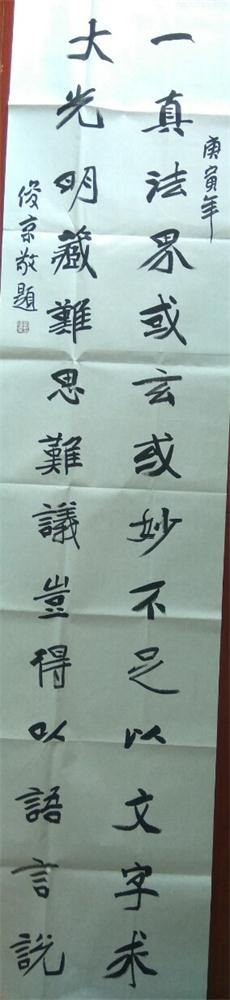 庚寅年
一真法界或玄或妙不足以文字求
大光明藏難思難議豈得以語言説
俊京敬題